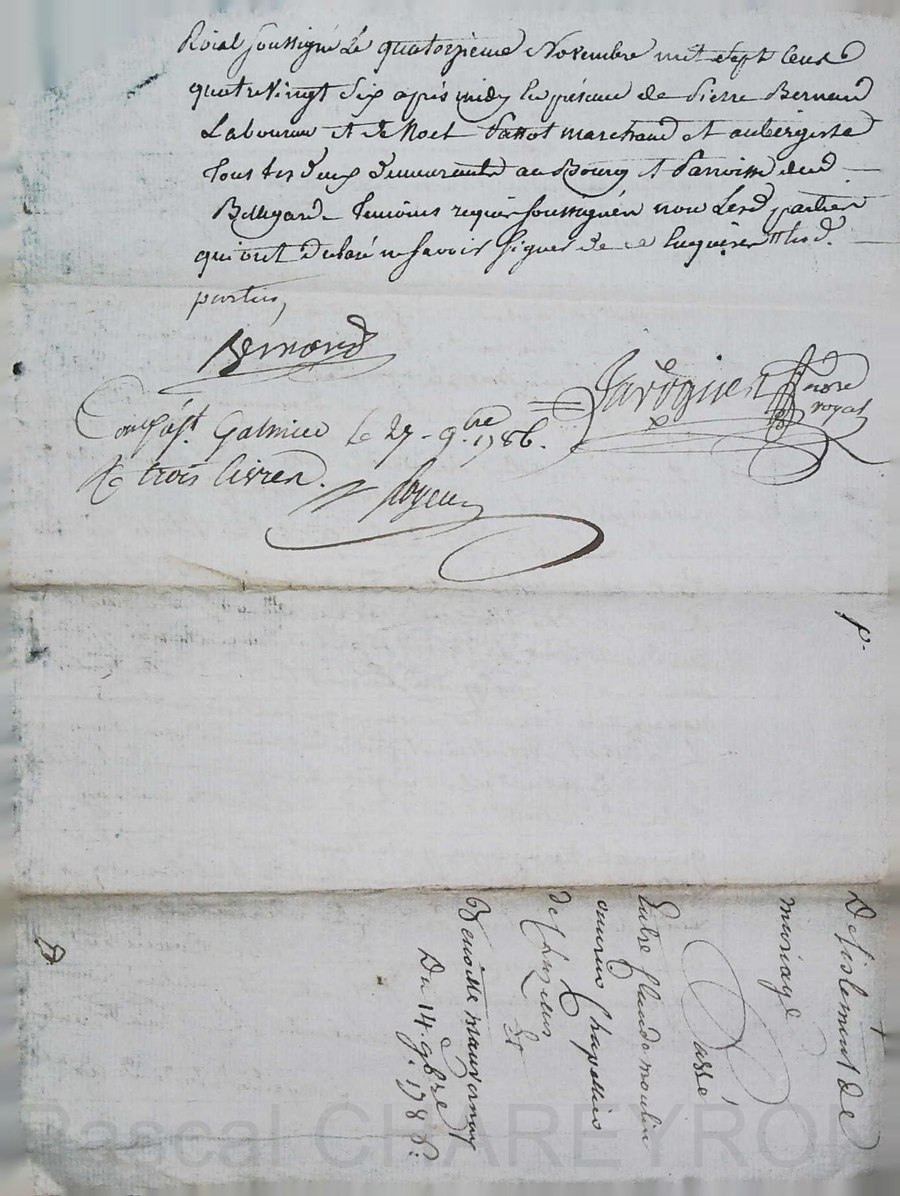 Roïal soussigné Le quatorzieme Novembre mil sept Cent
quatrevingt Six après midy En présence de Pierre Bernard
Laboureur et de Noel Passot marchand et aubergiste
Tous les deux demeurants au Bourg et Parroisse dud
Bellegard Temoins requis soussignés non Lesd. parties
qui ont declaré ne savoir signer de ce Enquises et lesd.
parties
Bernard
Javogues
nore
royal
Con. Galmier le 27 9bre 1786.
trois livres.
p.
Desistement de
mariage
Passé
Entre Claude moulin
ouvrier Chapellier
de
Et
Benoitte mauvernay
Du 14. 9bre 1786.
Pascal CHAREYRON